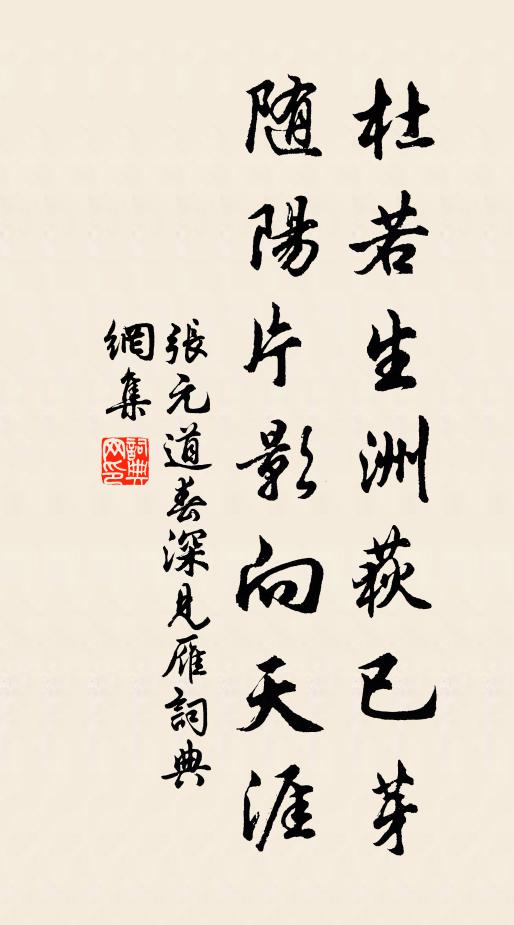 杜若生洲荻已芽
随陽片影向天涯
張元道春深見雁詞典
網集
詞典网印